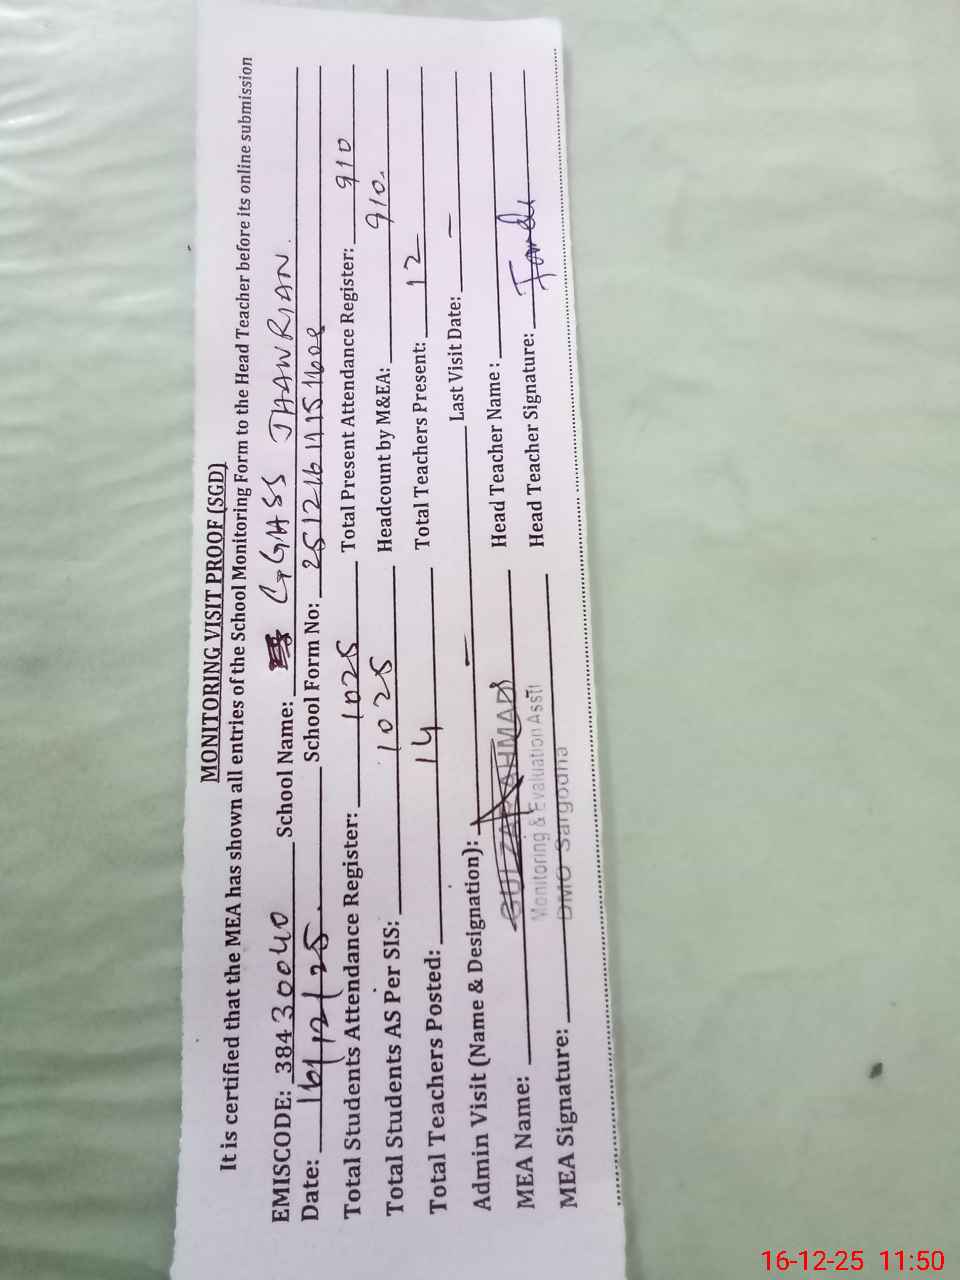 MONITORING VISIT PROOF (SGD)
It is certified that the MEA has shown all entries of the School Monitoring Form to the Head Teacher before its online submission
EMISCODE: 38430040 School Name: GGHSS JHAWRIAN.
Date: 16/12/25. School Form No: 251216111511608
Total Students Attendance Register: 1025 Total Present Attendance Register: 910
Total Students AS Per SIS: 1025 Headcount by M&EA: 910.
Total Teachers Posted: 14 Total Teachers Present: 12
Admin Visit (Name & Designation): — Last Visit Date: —
MEA Name: GULZAR AHMAD Head Teacher Name :
Monitoring & Evaluation Asstt
MEA Signature: DMO Sargodha Head Teacher Signature:
16-12-25 11:50